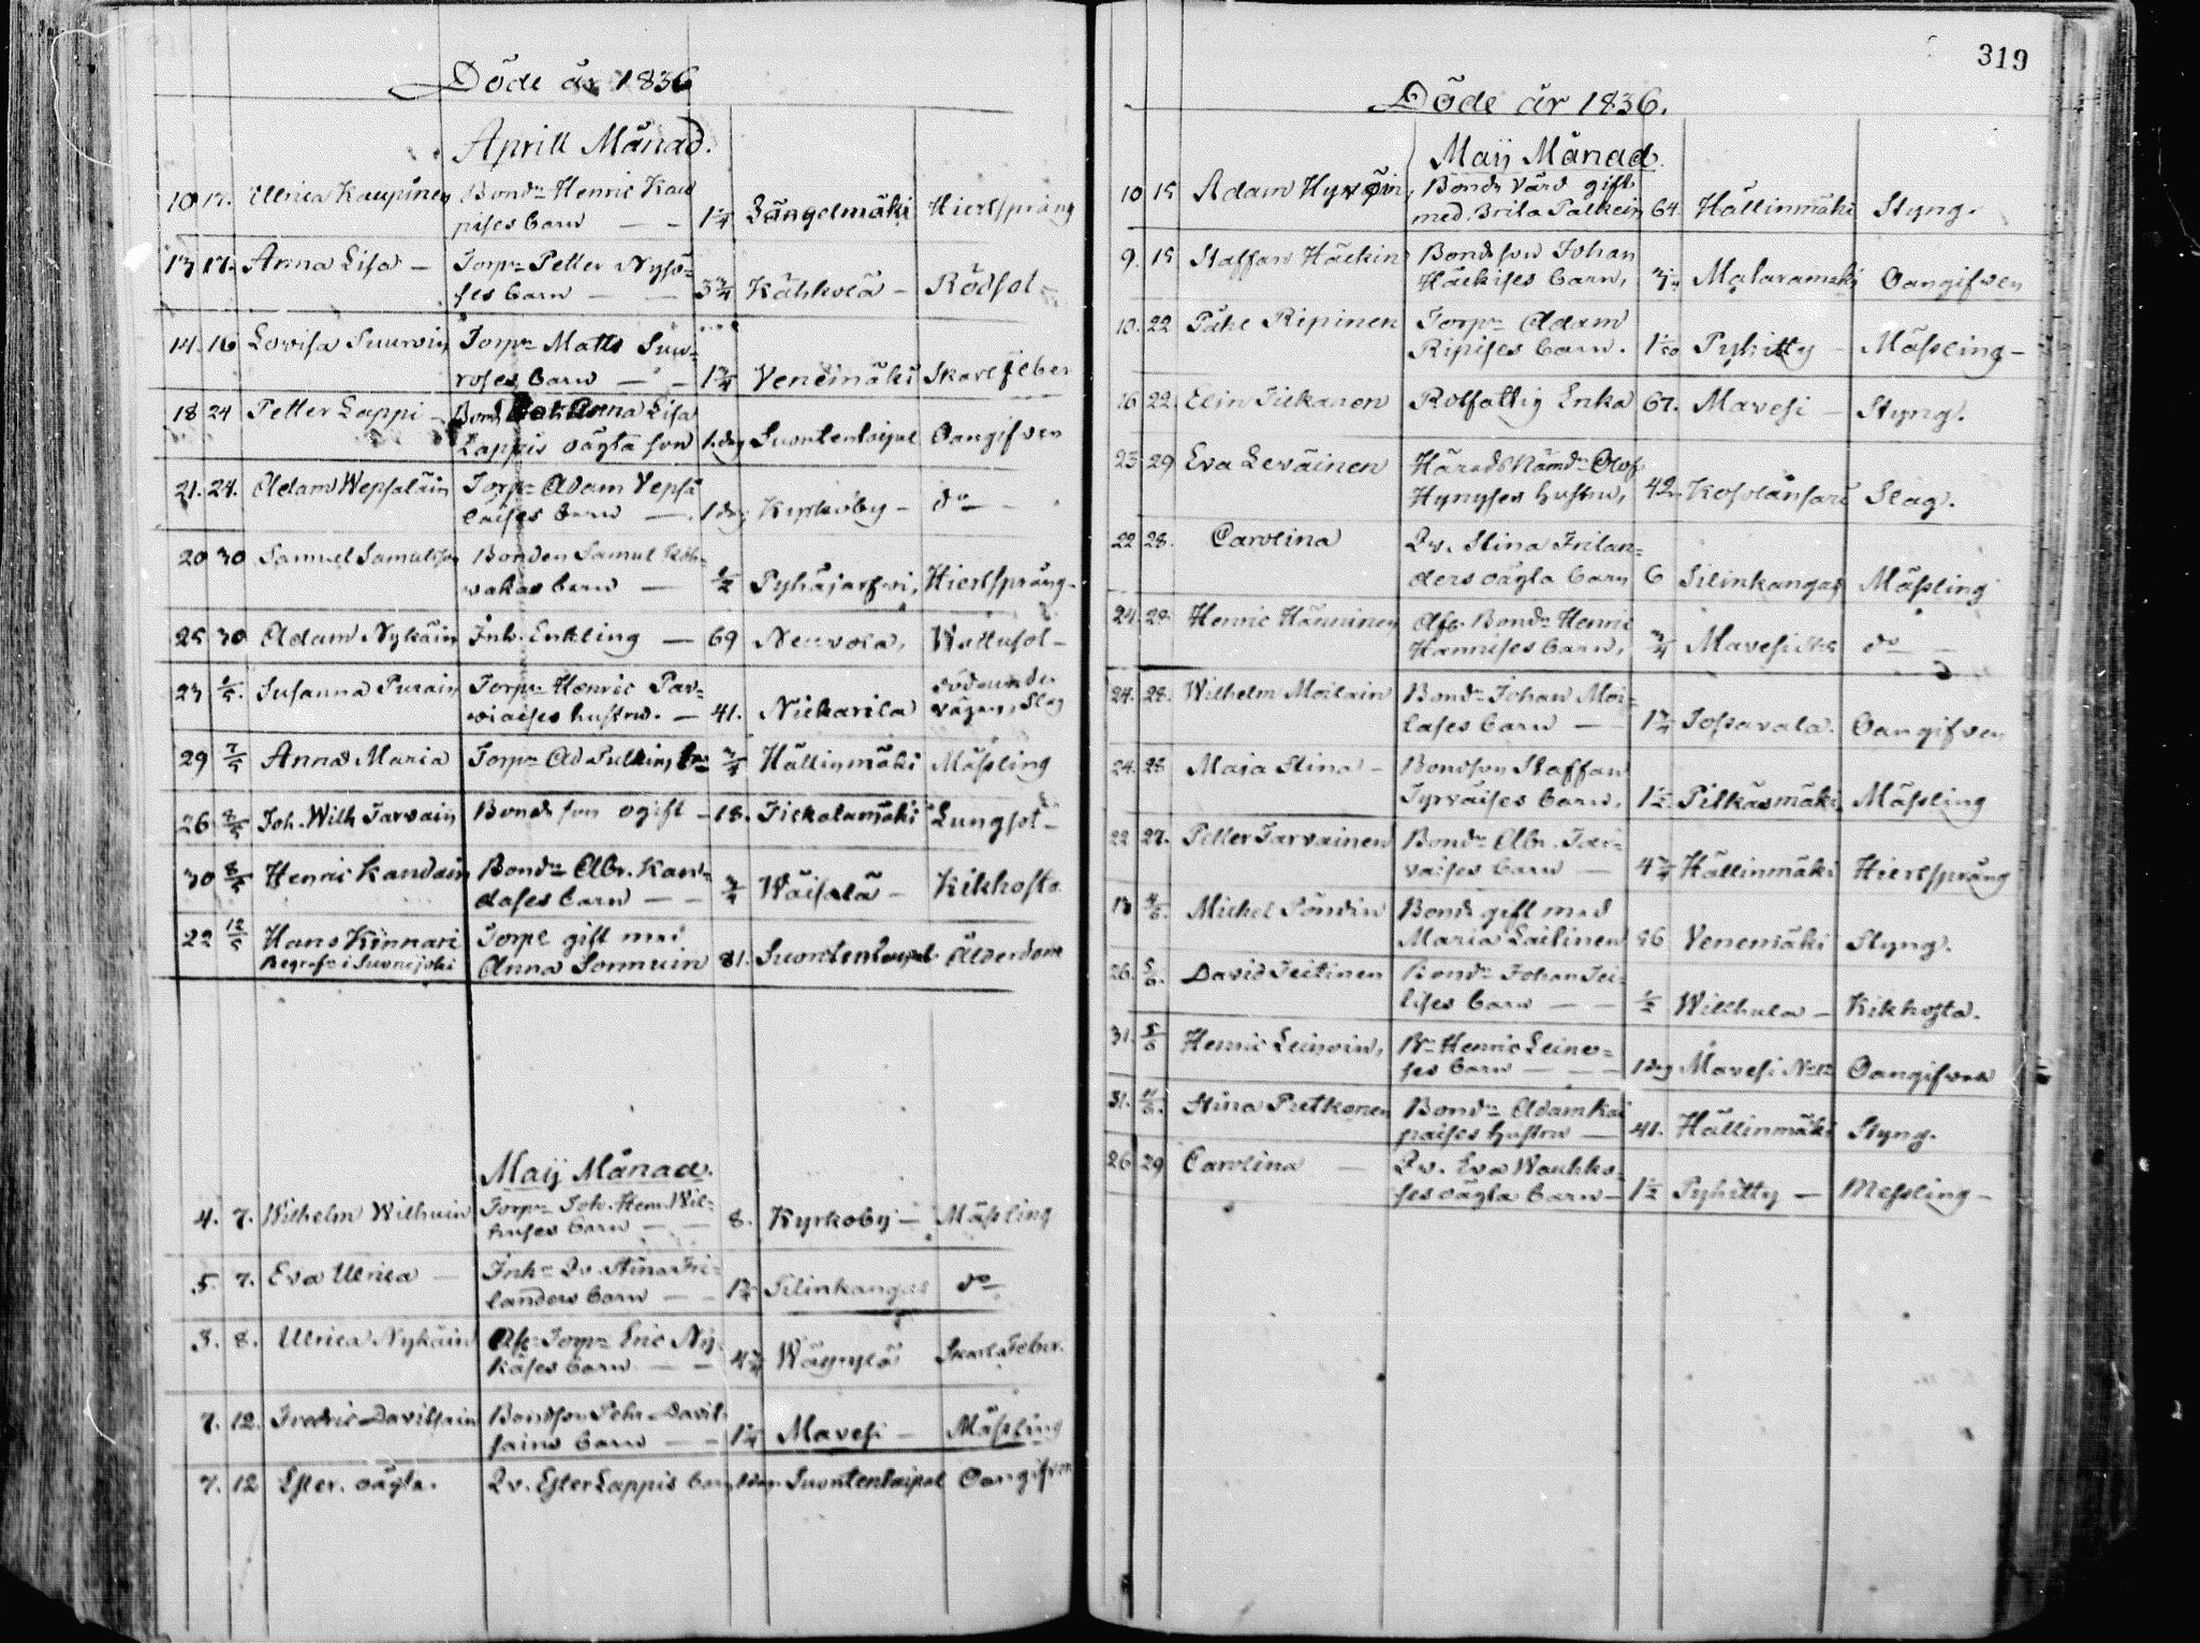 Döde år 1836
Aprill Månad.
10 17. Ulrica Kaupinen Bondn Henric Kau
pises barn — - 1¼ Längelmäki Hiertsprång
13 17. Anna Lisa — Torpn Petter Nysö-
ses barn — — 3¾ Kähkölä - Rödsot
14. 16 Lovisa Suuroin Torpn Matts Suu-
roses barn — - 1¾ Venemäki Skarl feber
18 24 Petter Lappi - Bond Anna Lisa
Lappis oägta son 1 dag Suontentaipal Oangifven
21. 24. Adam Wepsäläin Torpn Adam Vepsä
läises barn — 1 dag Kyrkoby - do
20 30 Samuel Samuelsson Bonden Samul
barn — ½ Pyhäjärfvi, Hiertsprång.
25 30 Adam Nykäin Inh. Enkling — 69 Neuvola, Wattusot -
23 1/5. Susanna Purain Torpn Henric Par-
viaises hustru. — 41. Nickarila Död under
vägen, Slag
29 7/5 Anna Maria Torpn Ad Pulkins bn ¾ Hällinmäki Mässling
26 8/5 Joh. Wilh Tarvain Bonde son ogift - 18. Lungsot -
30 8/5 Henric Kandain Bondn Abr. Kan-
dases barn — - ¾ Wäisälä - Kikhosta
22 12/5 Hans Kinnari Torpe gift med
Begrafs i Suonejoki Anna Sormuin 81. Suontentaipal Ålderdom
Maij Månad.
4. 7. Wilhelm Wilhuin Torpn Joh. Henr. Wil-
huses barn — 8. Kyrkoby - Mässling
5. 7. Eva Ulrica — Inhn Qv Stina Fri-
landers barn — Silinkangas do
3. 8. Ulrica Nykäin Afl. Torpn Eric Ny-
käses barn — - 4¾ Skarl Feber.
7. 12. Fredric Davidsain Bondson Pehr David-
sains barn — - 1¼ Mavesi - Mässling
7. 12 Ester. oägta. Qv. Ester Lappis barn 1 dag Suontentaipal Oangifven
319
Döde år 1836.
Maij Månad.
10 15 Adam Hyvöin, Bonde Vård gift
med Brita Pälkein 64. Hällinmäki Styng.
9. 15 Staffan Häckin Bondeson Johan
Häckises barn, Oangifven
10. 22 Pähr Ripinen Torpn Adam
Ripises barn. Pyhitty - Mässling -
16 22. Elin Tickanen Rotfattig Enka 67. Mavesi - Styng.
23 29 Eva Leväinen Härads Nämdn Olof
Hynyses hustru, 42. Kosolansari Slag.
22 28. Carolina Qv. Stina Frilan-
ders oägta barn 6 Silinkangas Mässling
24. 28. Henric Hänninen Afl. Bondn Henric
Hännises barn, ¾ Mavesi do -
24. 28. Wilhelm Moilain Bondn Johan Moi-
lases barn — 1¾ Tossavala. Oangifven
24. 28 Maja Stina - Bondson Staffan
Tyrväises barn. 1½ Pitkäsmäki Mässling
22 27. Petter Tarvainen Bondn Abr. Tar-
vaises barn — 4¾ Hällinmäki Hiertsprång
13 4/6. Michel Pöndin Bonde gift med
Maria Lailinen 86 Venemäki Styng.
26. 5/6. David Teitinen Bondn Johan Tei-
tises barn — - ½ Wilkhula - Kikhosta.
31. 5/6 Henric Leinoin, Bn Henric Leino-
ses barn — — 1 dag Mavesi No 12 Oangifven
31. Stina Putkonen Bondn Adam Kai
paises hustru — 41. Hällinmäki Styng.
26 29 Carolina — Qv. Eva Wauhko-
ses oägta barn - 1½ Pyhitty - Messling -